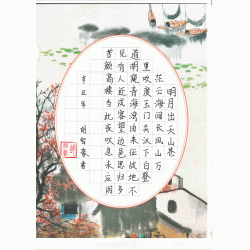 明月出天山苍
茫云海间长风几万
里吹度玉门关汉下白登
道胡窥青海湾由来征战地不
见有人还戍客望边邑思归多
苦颜高楼当此夜叹息未应闲
辛丑年